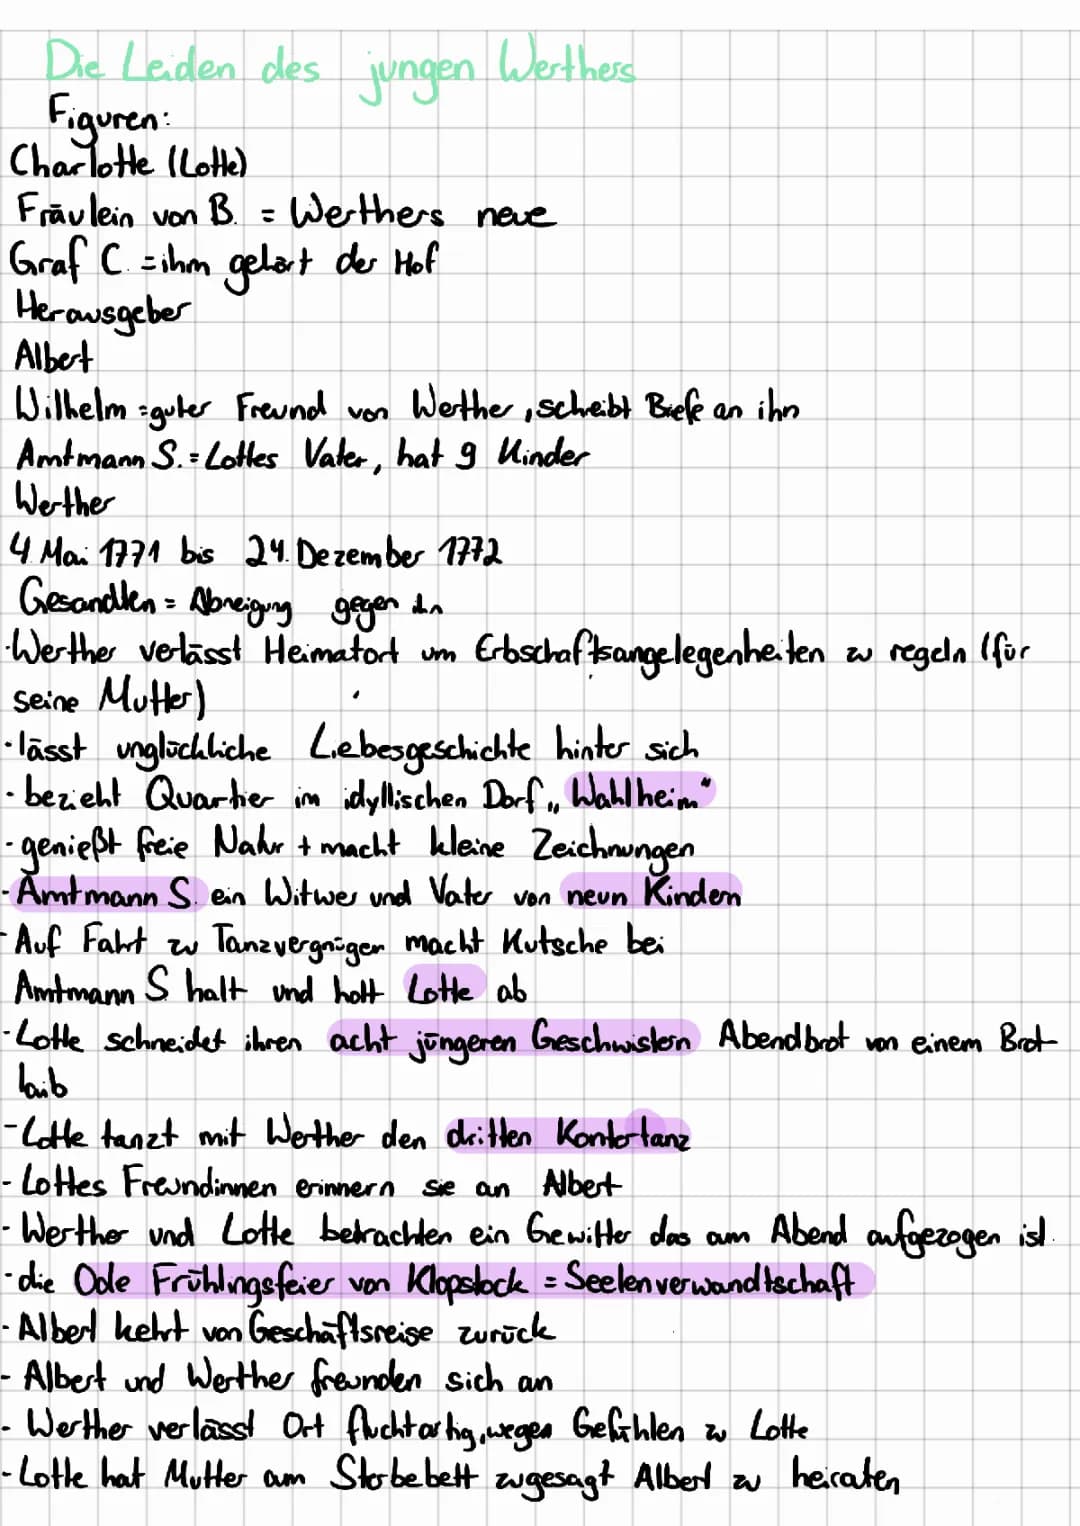 Die Leiden des jungen Werthers
Figuren:
Charlotte (Lotte)
Fräulein von B. = Werthers neue
Graf C. = ihm gehört der Hof
Herausgeber
Albert
Wilhelm = guter Freund von Werther, scheibt Biefe an ihn
Amtmann S. = Lottes Vater, hat 9 Kinder
Werther
4. Mai 1771 bis 24. Dezember 1772
Gesandten = Abneigung gegen ihn
·Werther verlässt Heimatort um Erbschaftsangelegenheiten zu regeln (für
seine Mutter)
·lässt unglückliche Liebesgeschichte hinter sich
·bezieht Quartier im idyllischen Dorf „Wahlheim“
-genießt freie Natur + macht kleine Zeichnungen
-Amtmann S. ein Witwer und Vater von neun Kindern
-Auf Fahrt zu Tanzvergnügen macht Kutsche bei
Amtmann S halt und holt Lotte ab
-Lotte schneidet ihren acht jüngeren Geschwistern Abendbrot von einem Brot-
laib
-Lotte tanzt mit Werther den dritten Kontertanz
-Lottes Freundinnen erinnern sie an Albert
-Werther und Lotte betrachten ein Gewitter das am Abend aufgezogen ist.
-die Ode Frühlingsfeier von Klopstock = Seelenverwandtschaft
-Albert kehrt von Geschäftsreise zurück
-Albert und Werther freunden sich an
-Werther verlässt Ort fluchtartig, wegen Gefühlen zu Lotte
-Lotte hat Mutter am Sterbebett zugesagt Albert zu heiraten